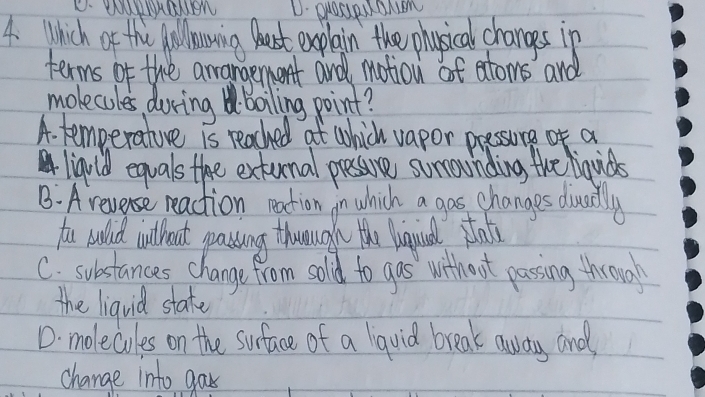 D. precipitation
4. Which of the following best explain the physical changes in
terms of the arrangement and motion of atoms and
molecules during boiling point?
A. temperature is reached at which vapor pressure of a
liquid equals the external pressure surrounding the liquids
B. A reverse reaction reaction in which a gas changes directly
to solid without passing through the liquid state
C. substances change from solid to gas without passing through
the liquid state
D. molecules on the surface of a liquid break away and
change into gas